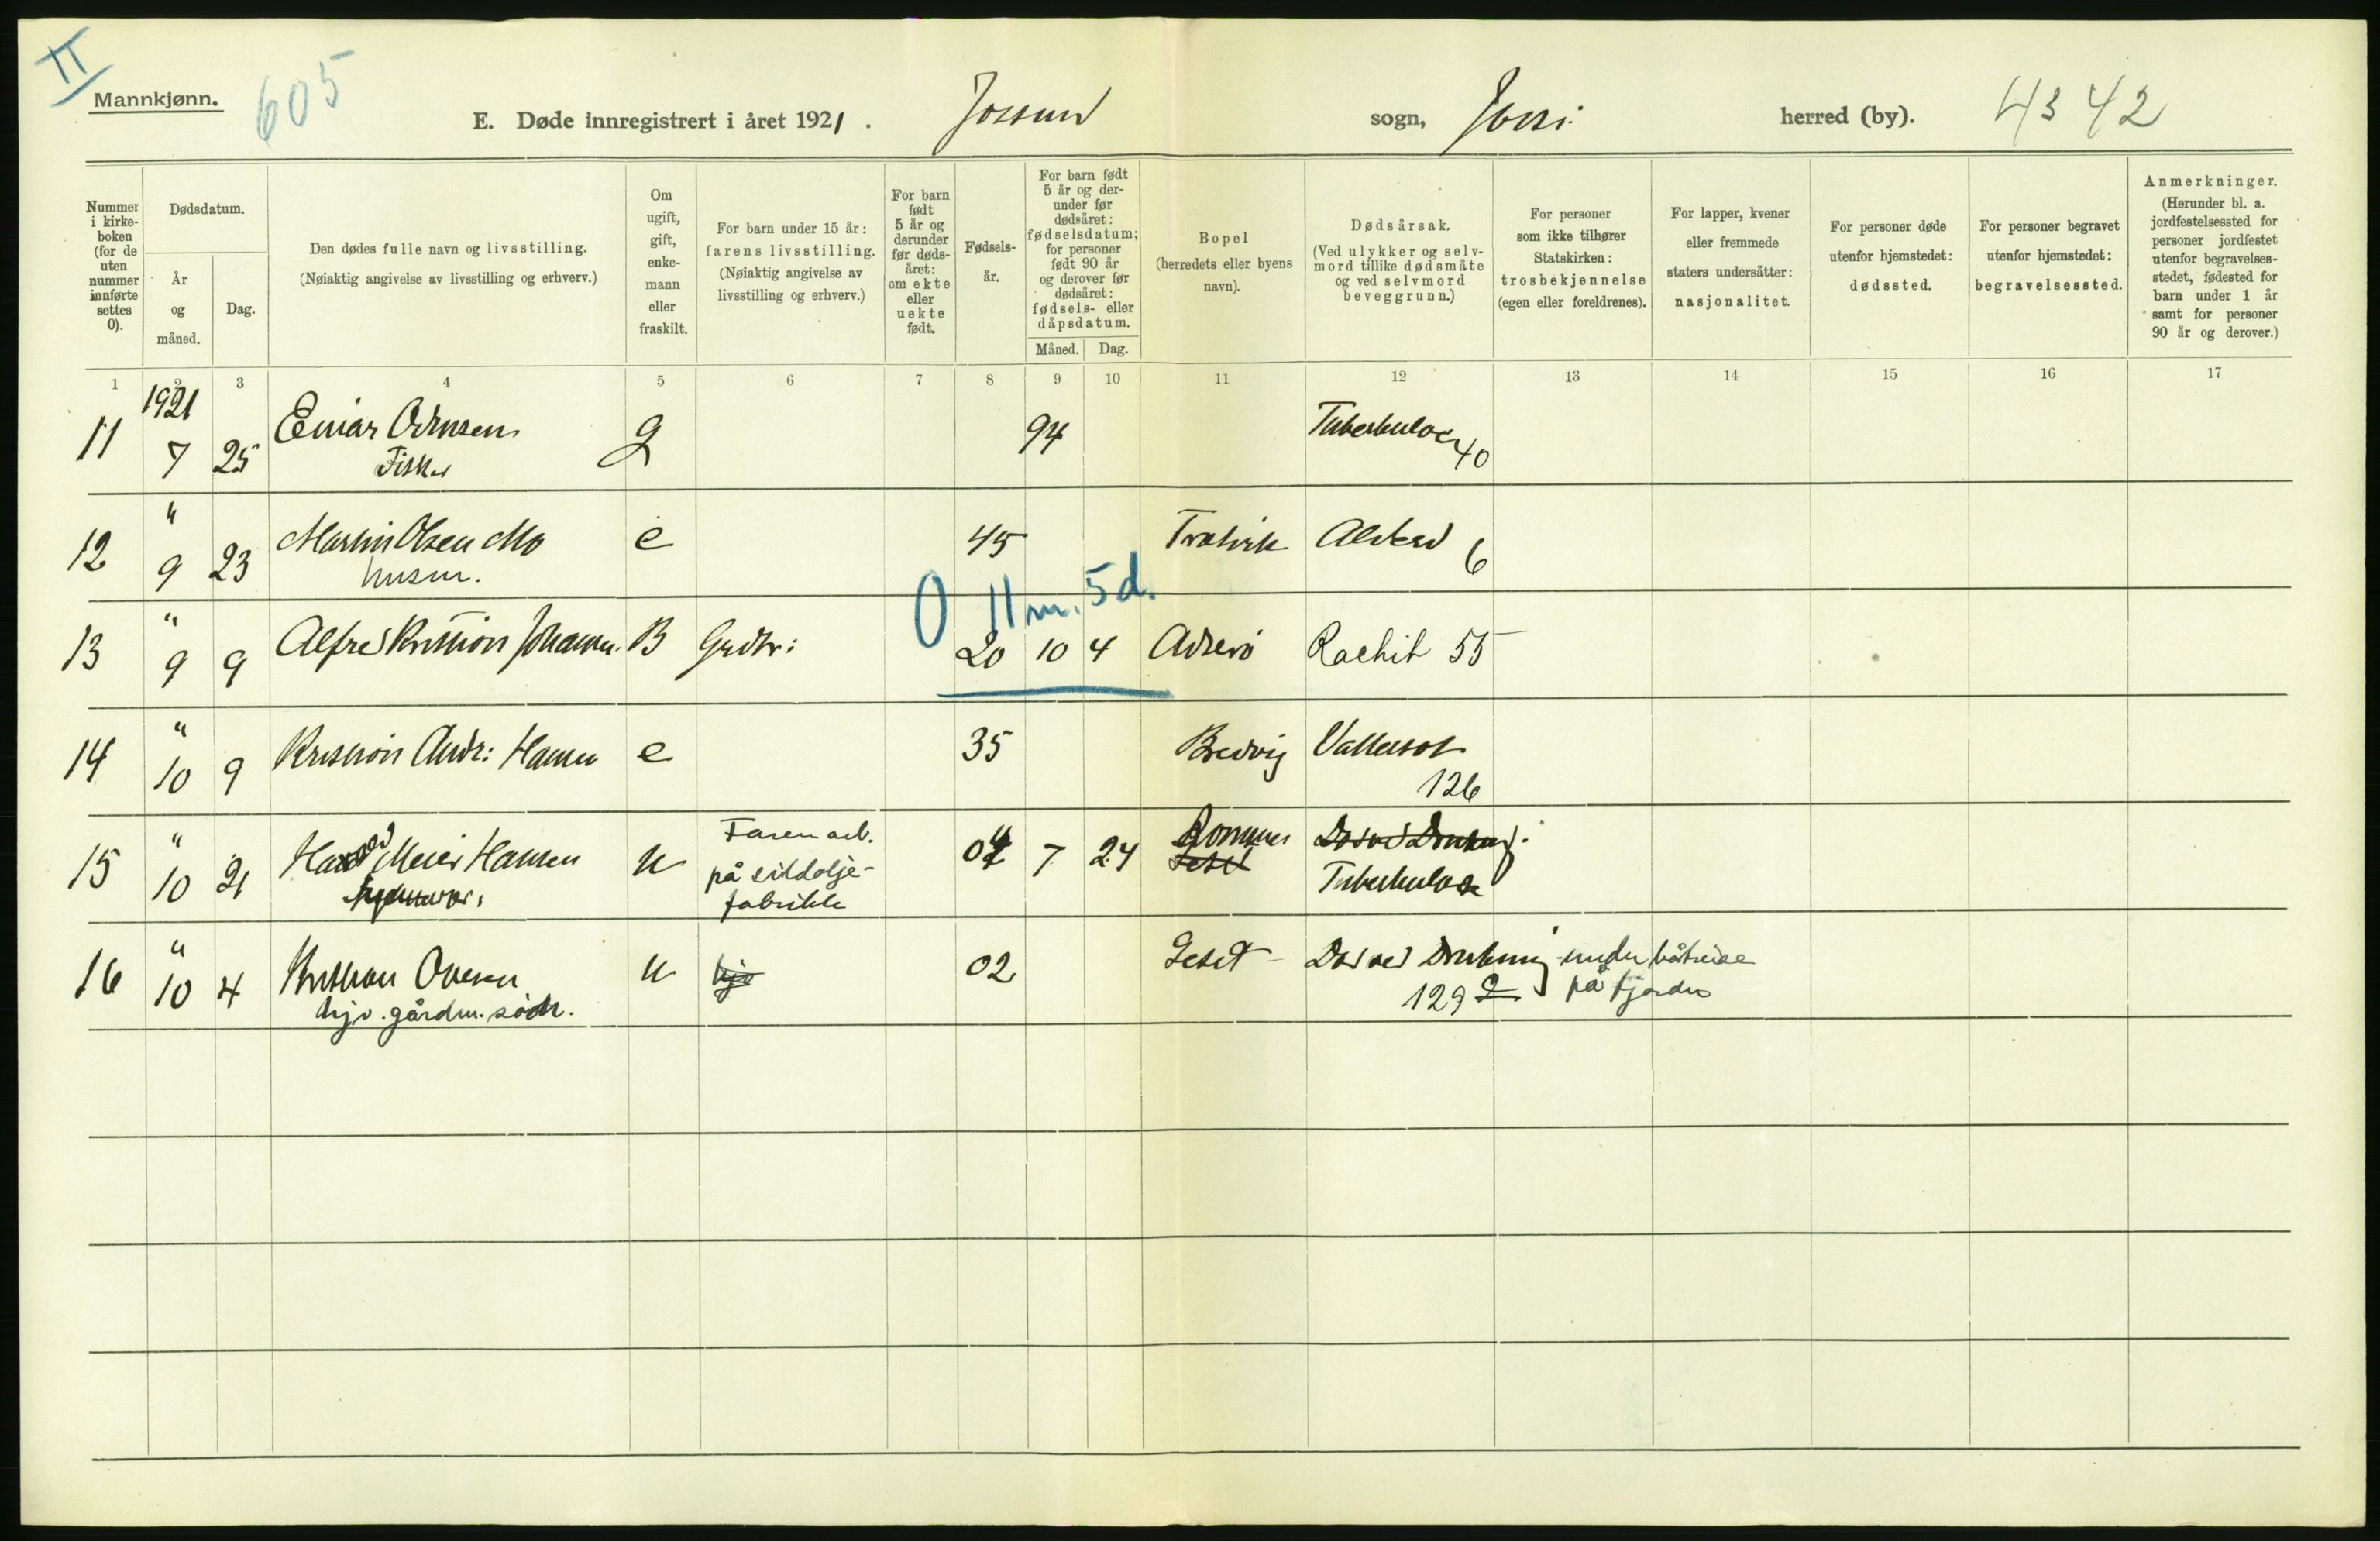 II
Mannkjønn.
605
E. Døde innregistrert i året 1921. Jossund sogn, herred (by). 4342
Nummer i kirke-boken (for de uten nummer innførte settes 0).
Dødsdatum.
År og måned.
Dag.
Den dødes fulle navn og livsstilling.
(Nøiaktig angivelse av livsstilling og erhverv.)
Om ugift, gift, enke-mann eller fraskilt.
For barn under 15 år: farens livsstilling.
(Nøiaktig angivelse av livsstilling og erhverv.)
For barn født 5 år og derunder før døds-året: om ekte eller uekte født.
Fødsels-år.
For barn født 5 år og der-under før dødsåret: fødselsdatum; for personer født 90 år og derover før dødsåret: fødsels- eller dåpsdatum.
Måned. Dag.
Bopel
(herredets eller byens navn).
Dødsårsak.
(Ved ulykker og selv-mord tillike dødsmåte og ved selvmord beveggrunn.)
For personer som ikke tilhører Statskirken: trosbekjennelse (egen eller foreldrenes).
For lapper, kvener eller fremmede staters undersåtter: nasjonalitet.
For personer døde utenfor hjemstedet: dødssted.
For personer begravet utenfor hjemstedet: begravelsessted.
Anmerkninger.
(Herunder bl. a. jordfestelsessted for personer jordfestet utenfor begravelses-stedet, fødested for barn under 1 år samt for personer 90 år og derover.)
1 2 3 4 5 6 7 8 9 10 11 12 13 14 15 16 17
1921
11 7 25 Einar g 94 Tuberkulose 40
Fisker
12 " 9 23 Martin Olsen Mo e 45 Alderd 6
husm.
0 11 m. 5 d.
13 " 9 9 Alfred Kristian Johansen B Grdbr: 20 10 4 Rachit 55
14 " 10 9 Kristian Andr: Hansen e 35 Bredvig Vattersot
126
15 " 10 21 Harald Meier Hansen u Faren arb. på sildolje-fabrikk 04 7 24 Død ved Drukning.
Seset Tuberkulose
16 " 10 4 Kristian Ovesen u hjv 02 Seset Død ved Drukning under båtreise
hjv. gårdm. sønn. 129 2 på fjorden